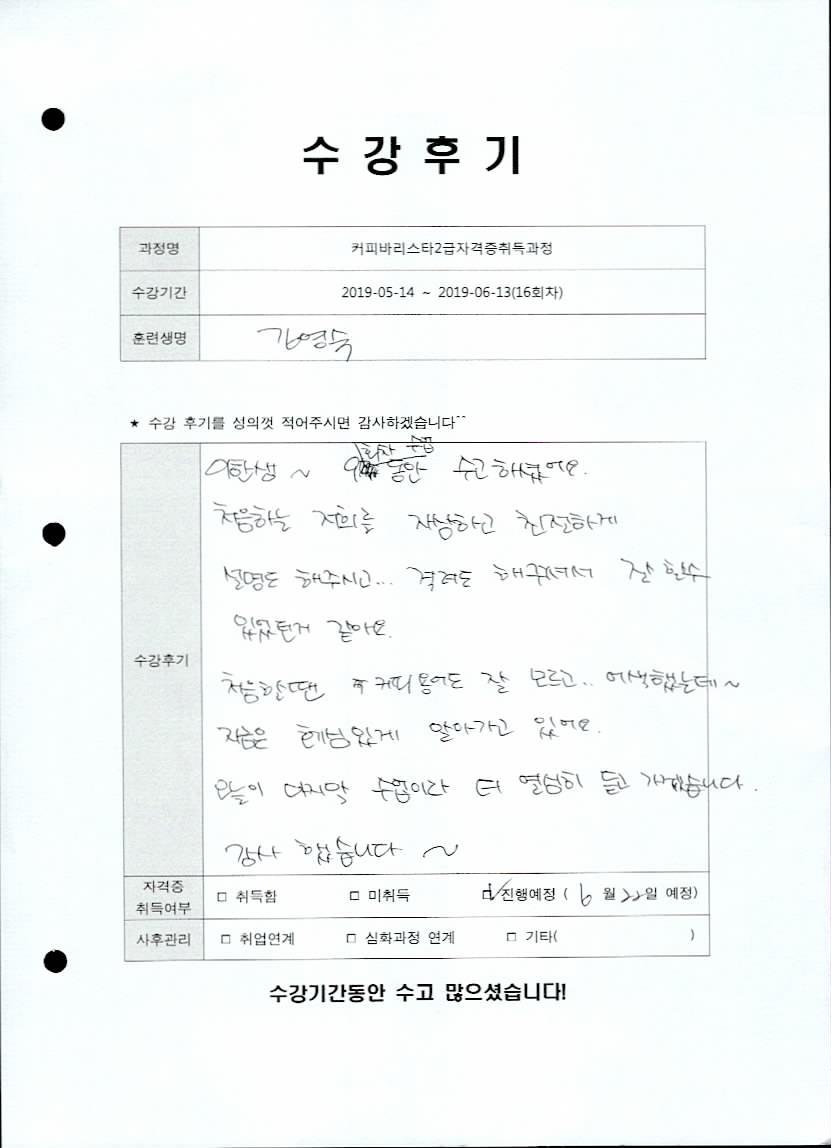 수강후기
과정명 커피바리스타2급자격증취득과정
수강기간 2019-05-14 ~ 2019-06-13(16회차)
훈련생명 김영숙
★ 수강 후기를 성의껏 적어주시면 감사하겠습니다^^
수업
~ 동안 수고하셨어요.
처음하는 저희를 자상하고 친절하게
설명도 해주시고... 격려도 해주셔서 잘 할수
있었던거 같아요.
수강후기
처음할땐 커피용어도 잘 모르고.. 어색했는데~
지금은 재미있게 알아가고 있어요.
오늘이 마지막 수업이라 더 열심히 듣고 가겠습니다.
감사했습니다 ~
자격증 취득여부 □ 취득함 □ 미취득 ☑ 진행예정 ( 6 월 22일 예정)
사후관리 □ 취업연계 □ 심화과정 연계 □ 기타( )
수강기간동안 수고 많으셨습니다!